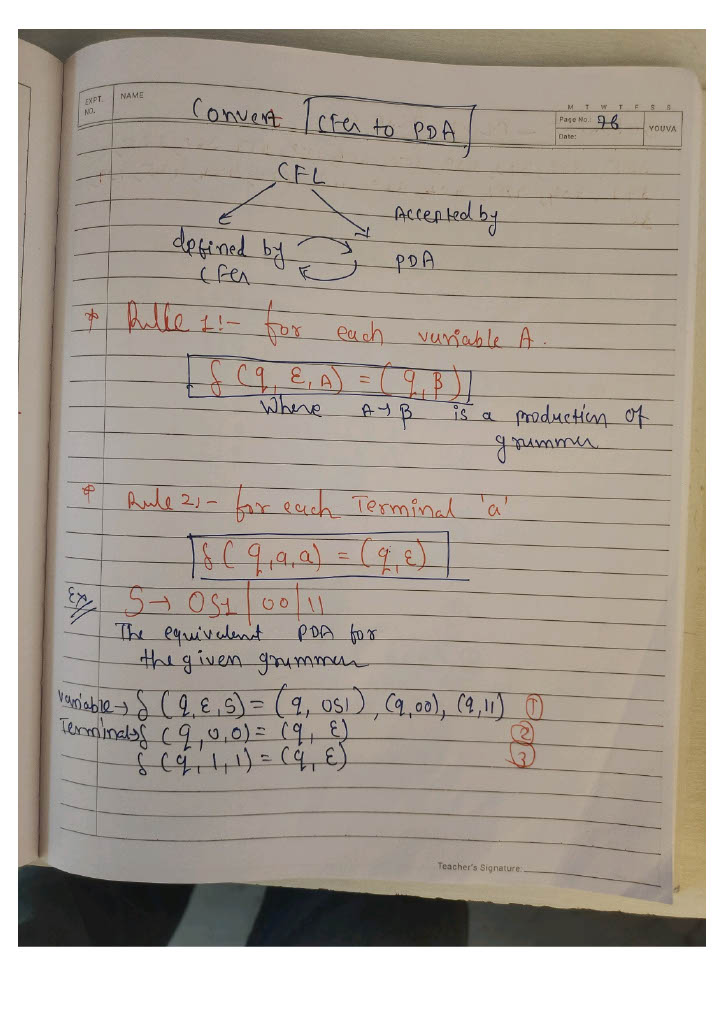 EXPT. NO.
NAME
M T W T F S S
Page No.: 76
Date:
YOUVA
Convert CFG to PDA
CFL
Accepted by
defined by
CFG
PDA
* Rulle 1:- for each variable A.
δ (q, ε, A) = (q, β)
Where A → β is a production of
grummer
* Rule 2:- for each Terminal 'a'
δ (q, a, a) = (q, ε)
Ex S → 0S1 | 00 | 11
The equivalent PDA for
the given grummer
Variable → δ (q, ε, S) = (q, 0S1), (q, 00), (q, 11) ①
Terminal → δ (q, 0, 0) = (q, ε) ②
δ (q, 1, 1) = (q, ε) ③
Teacher's Signature: